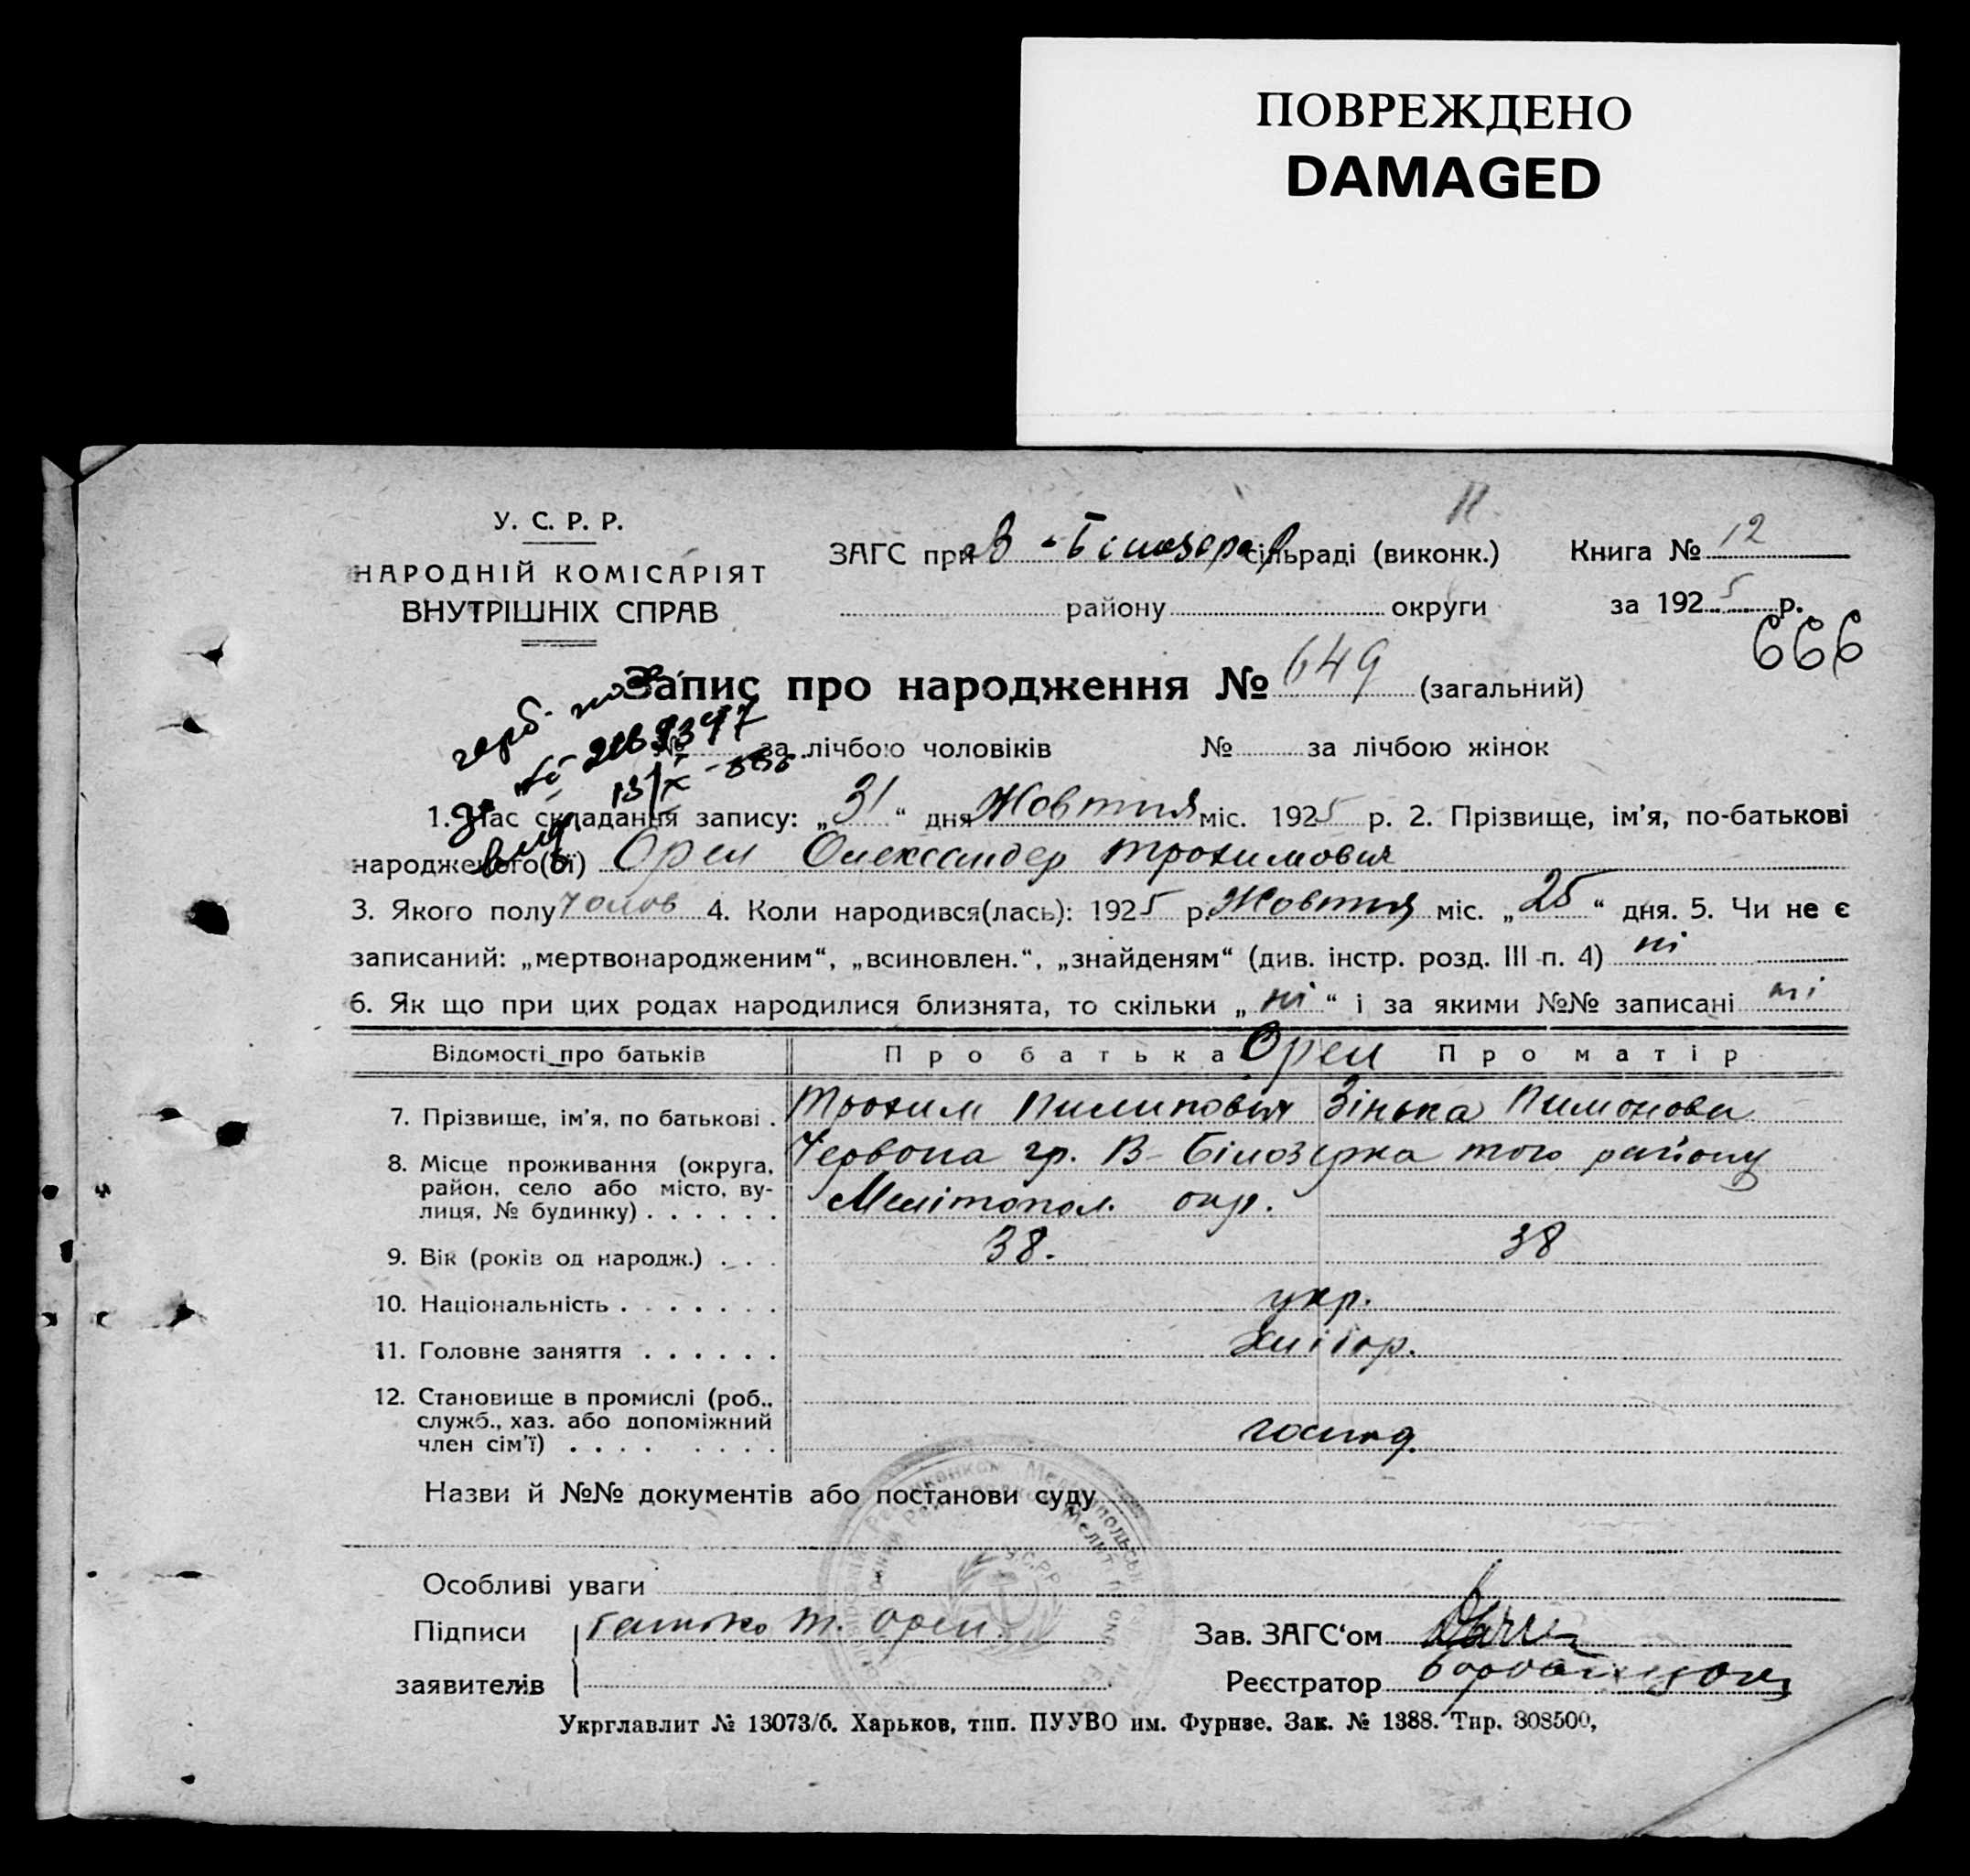 ПОВРЕЖДЕНО
DAMAGED
У. С. Р. Р.
НАРОДНІЙ КОМІСАРІЯТ
ВНУТРІШНІХ СПРАВ
ЗАГС при В-Білозер сільраді (виконк.)
району округи
Книга № 12
за 1925 р.
666
Запис про народження № 649 (загальний)
№ за лічбою чоловіків № за лічбою жінок
1. Час складання запису: „31“ дня Жовтня міс. 1925 р. 2. Прізвище, ім’я, по-батькові
народженого(ої) Орел Олександер Трохимович
3. Якого полу чолов 4. Коли народився(лась): 1925 р. Жовтня міс. „25“ дня. 5. Чи не є
записаний: „мертвонародженим“, „всиновлен.“, „знайденям“ (див. інстр. розд. III п. 4) ні
6. Як що при цих родах народилися близнята, то скільки „ні“ і за якими №№ записані ні
Відомості про батьків Про батька Орел Про матір
7. Прізвище, ім’я, по батькові . Трохим Пилипович Зінька Пимонова
8. Місце проживання (округа, район, село або місто, вулиця, № будинку) . . . . . . Червона гр. В-Білозерка того району
Мелітопол. окр.
9. Вік (років од народж.) . . . 38. 38
10. Національність . . . . . . . укр.
11. Головне заняття . . . . . . хлібор.
12. Становище в промислі (роб., служб., хаз. або допоміжний член сім’ї) . . . . . . . . господ.
Назви й №№ документів або постанови суду
Особливі уваги
Підписи заявителів батько Т. Орел.
Зав. ЗАГС‘ом
Реєстратор
Укрглавлит № 13073/б. Харьков, тип. ПУУВО им. Фурнзе. Зак. № 1388. Тир. 308500,